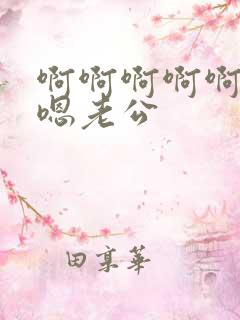 啊啊啊啊啊
嗯老公
田享华